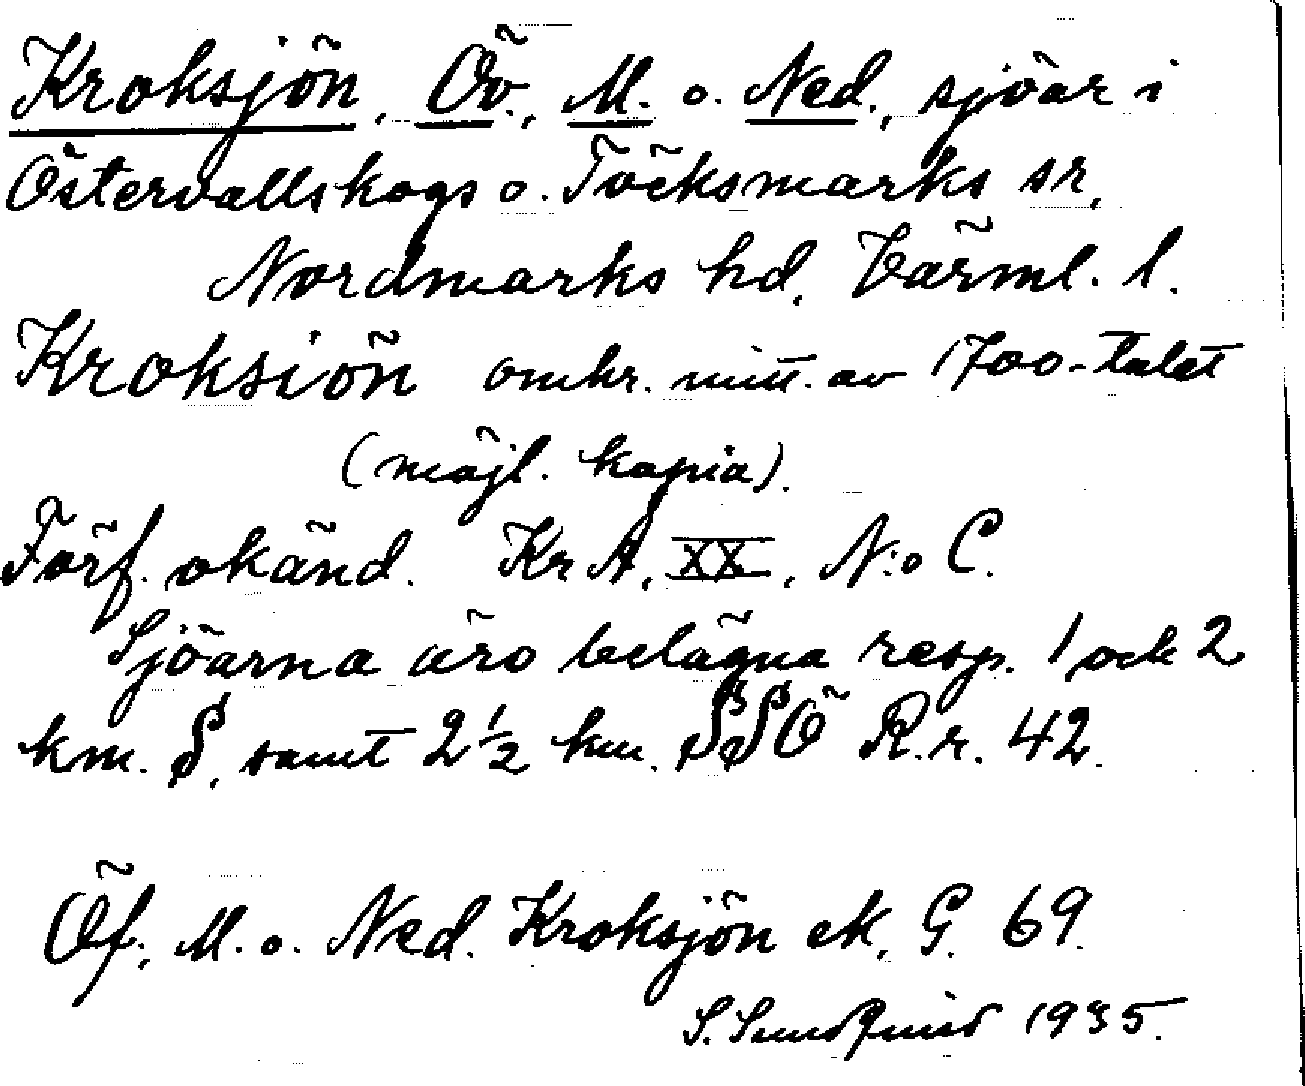 Kroksjön, Öv., M. o. Ned., sjöar i
Östervallskogs o. Töcksmarks sr,
Nordmarks hd, Värml. l.
Kroksiön omkr. mitt. av 1700-talet
(möjl. kopia).
Förf. okänd. Kr A, XX, N:o C.
Sjöarna äro belägna resp. 1 och 2
km. S, samt 2 1/2 km. SSÖ R.r. 42.
Öf., M. o. Ned. Kroksjön ek. G. 69.
S. Sundquist 1935.